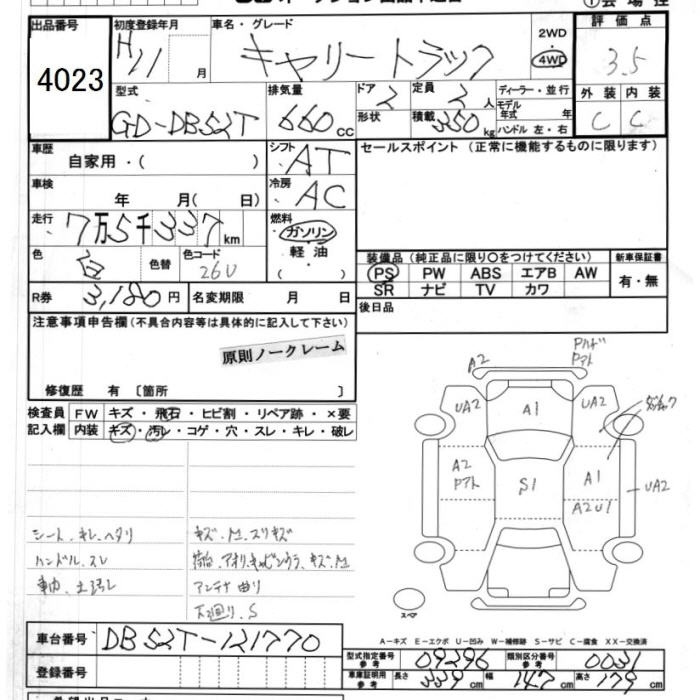 出品番号
4023
初度登録年月
H11 月
車名・グレード
キャリートラック
2WD
・
4WD
評価点
3.5
外装 内装
C C
型式
GD-DB52T
排気量
660 CC
ドア 2
形状
定員 2 人
積載 350 kg
ディーラー・並行
モデル年式 年
ハンドル 左・右
車歴
自家用・( )
シフト
AT
セールスポイント (正常に機能するものに限ります)
車検
年 月( 日)
冷房
AC
走行
7万5千337 km
燃料
ガソリン
軽油
( )
色
白
色替
色コード
26U
装備品 (純正品に限り○をつけてください)
PS PW ABS エアB AW
SR ナビ TV カワ
新車保証書
有・無
R券 3,180 円
名変期限 月 日
後日品
注意事項申告欄(不具合内容等は具体的に記入して下さい)
原則ノークレーム
修復歴 有 〔箇所 〕
検査員記入欄
FW キズ・飛石・ヒビ割・リペア跡・×要
内装 キズ・汚レ・コゲ・穴・スレ・キレ・破レ
シート、キレ、ヘタリ
ハンドル、スレ
アンテナ曲り
下廻り、S
A2
UA2
A1
UA2
A2
S1
A1
A2U1
UA2
スペア
A-キズ E-エクボ U-凹み W-補修跡 S-サビ C-腐食 XX-交換済
車台番号 DB52T-121770
登録番号
型式指定番号 参考 09296
類別区分番号 参考 0031
車庫証明用 参考 長さ 339 cm 幅 147 cm 高さ 179 cm